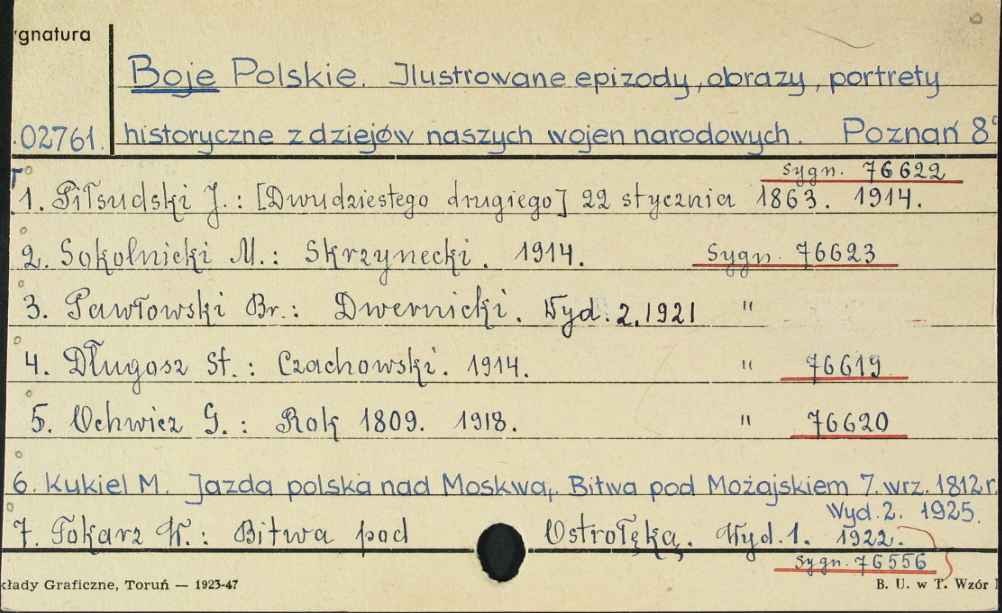 ygnatura
Boje Polskie. Ilustrowane epizody, obrazy, portrety
02761. historyczne z dziejów naszych wojen narodowych. Poznań 8°
sygn. 76622
1. Piłsudski J.: [Dwudziestego drugiego] 22 stycznia 1863. 1914.
2. Sokolnicki M.: Skrzynecki. 1914. Sygn. 76623
3. Pawłowski Br.: Dwernicki. Wyd. 2. 1921 "
4. Długosz St.: Czachowski. 1914. " 76619
5. Ochwicz G.: Rok 1809. 1918. " 76620
6. Kukiel M. Jazda polska nad Moskwą. Bitwa pod Możajskiem 7. wrz. 1812 r.
Wyd. 2. 1925.
7. Tokarz W.: Bitwa pod Ostrołęką. Wyd. 1. 1922.
sygn. 76556
kłady Graficzne, Toruń — 1923-47 B. U. w T. Wzór